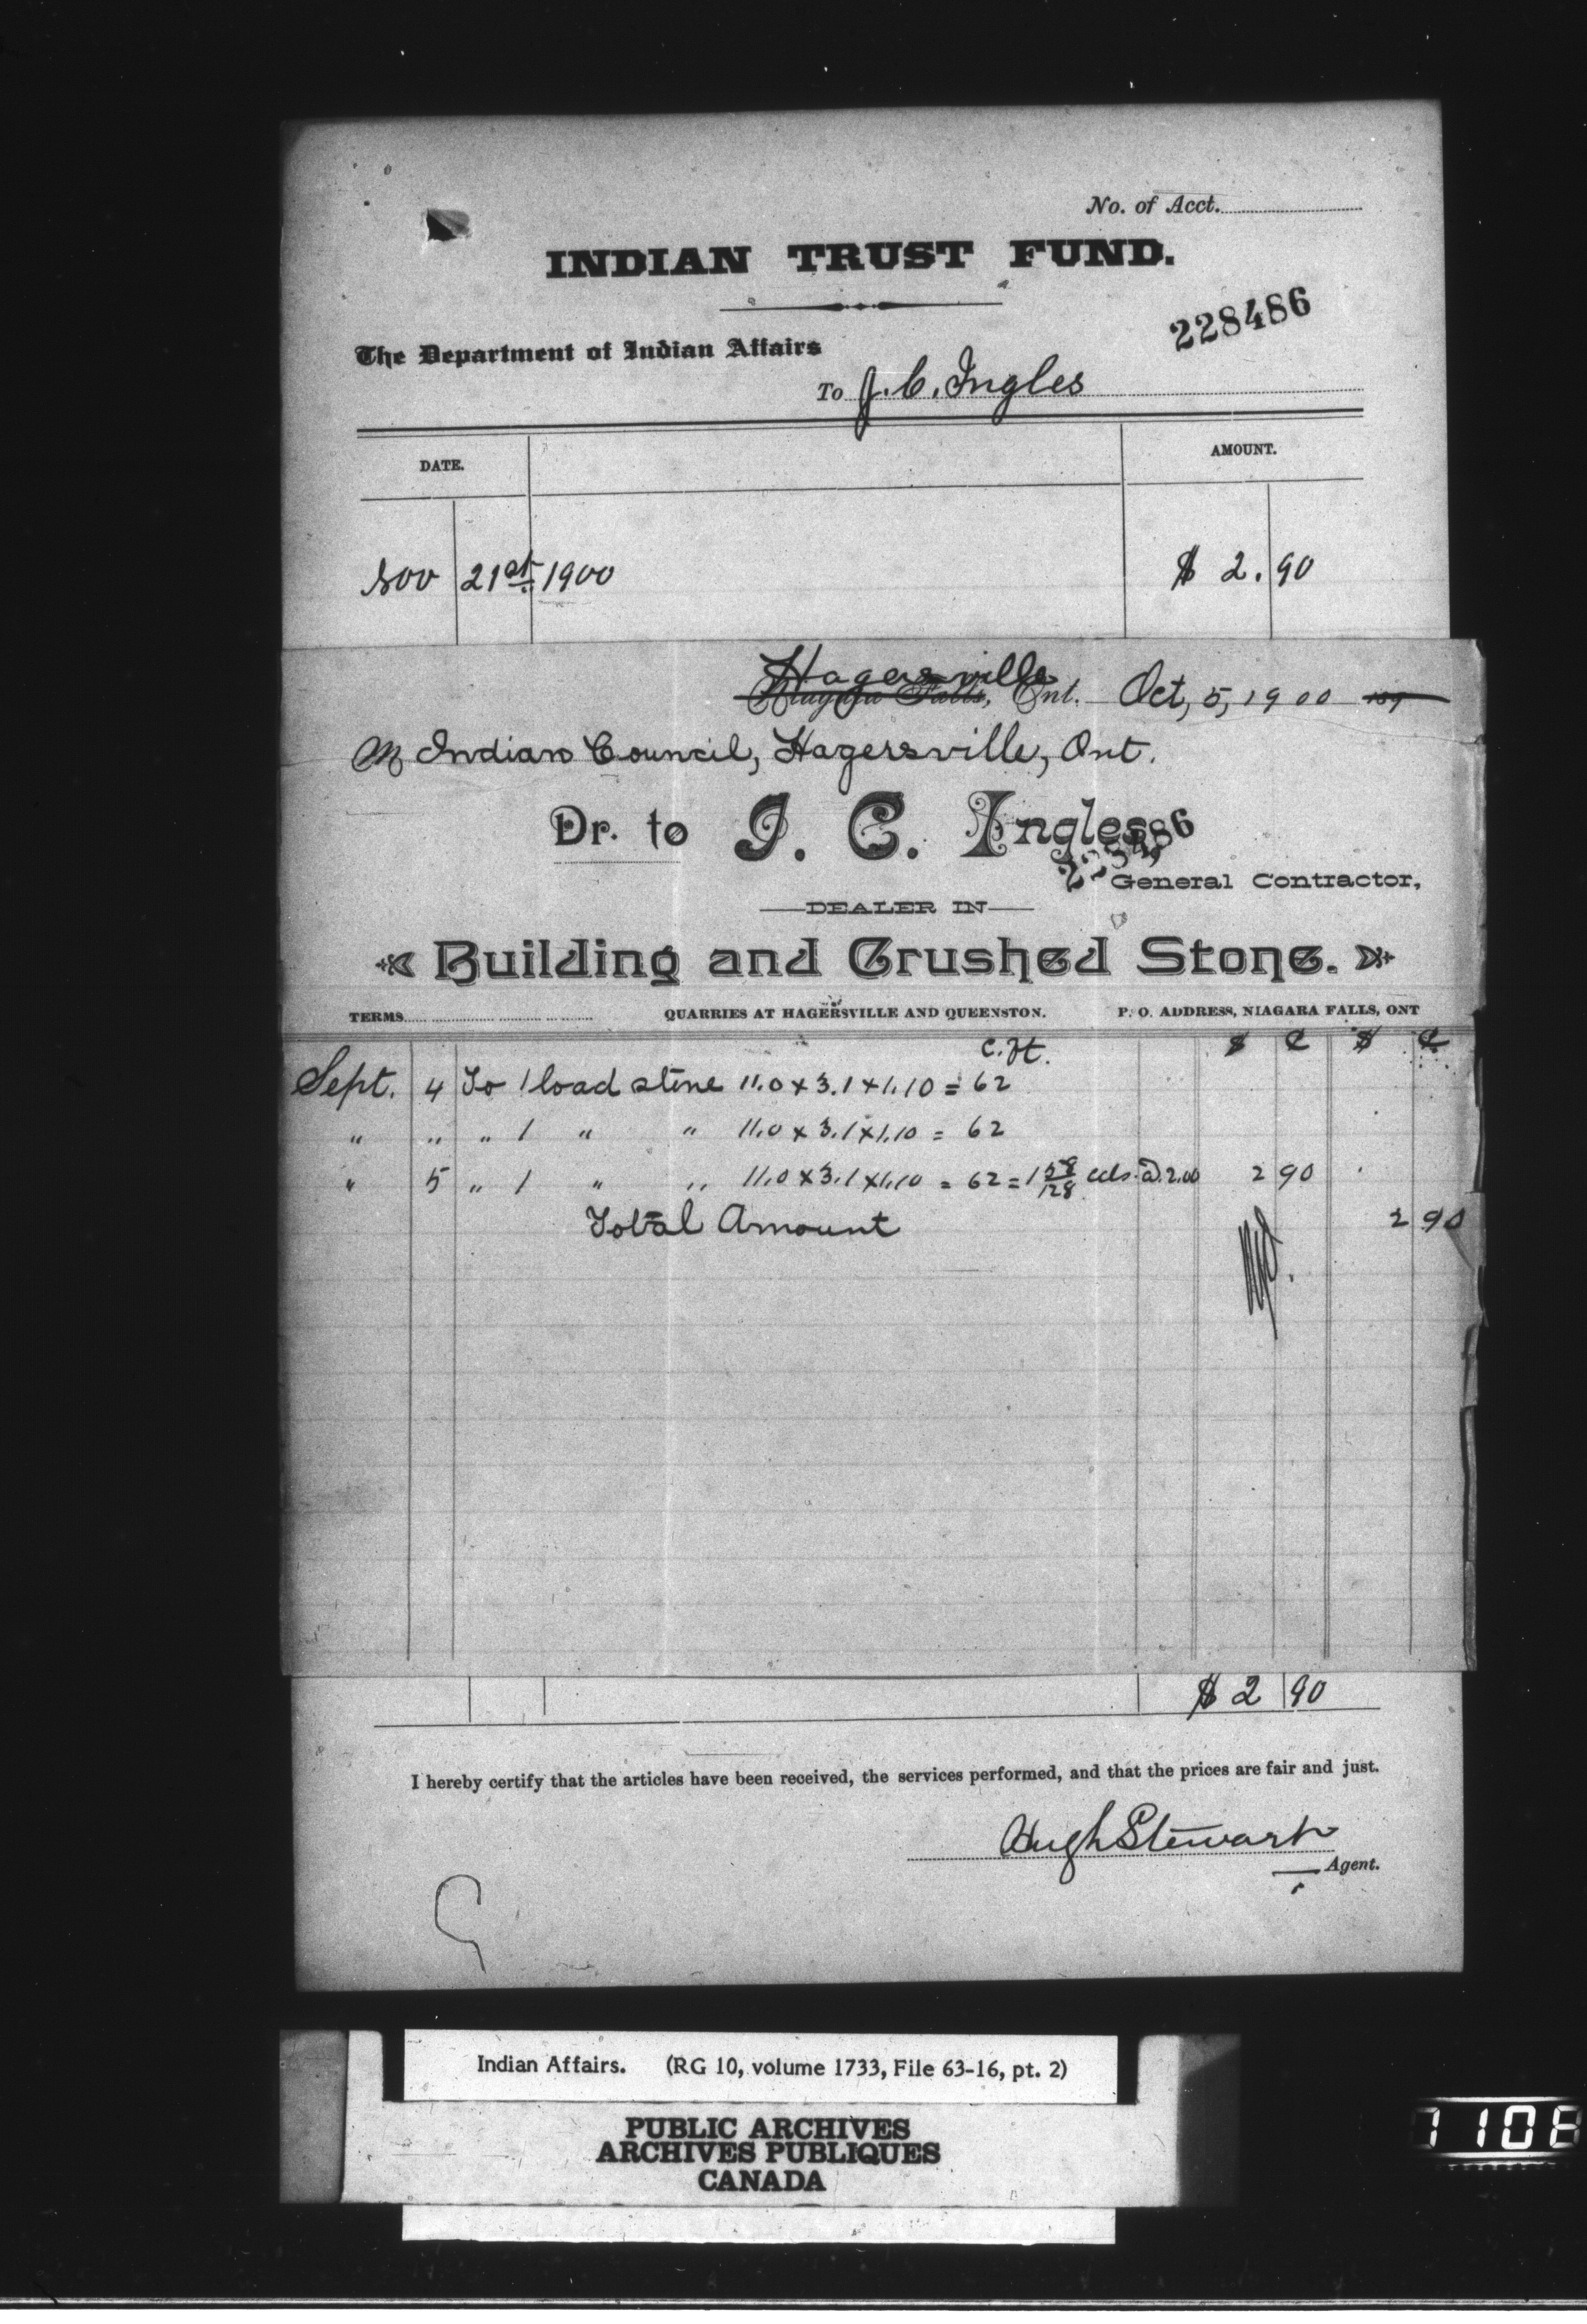 No. of Acct.
INDIAN TRUST FUND.
228486
The Department of Indian Affairs
To J. C. Ingles
DATE. AMOUNT.
Nov 21st 1900 $ 2.90
Hagersville
Niagara Falls, Ont. Oct, 5, 1900 189
M Indian Council, Hagersville, Ont.
Dr. to J. C. Ingles,
228486
General Contractor,
DEALER IN
Building and Crushed Stone.
TERMS QUARRIES AT HAGERSVILLE AND QUEENSTON. P. O. ADDRESS, NIAGARA FALLS, ONT
c.ft. $ ¢ $ ¢
Sept. 4 To 1 load stone 11.0 x 3.1 x 1.10 = 62
" " " 1 " " 11.0 x 3.1 x 1.10 = 62
" 5 " 1 " " 11.0 x 3.1 x 1.10 = 62 = 1 58/128 cds. @ 2.00 2 90
Total Amount 2 90
$ 2 90
I hereby certify that the articles have been received, the services performed, and that the prices are fair and just.
Hugh Stewart
Agent.
Indian Affairs. (RG 10, volume 1733, File 63-16, pt. 2)
PUBLIC ARCHIVES
ARCHIVES PUBLIQUES
CANADA
1108